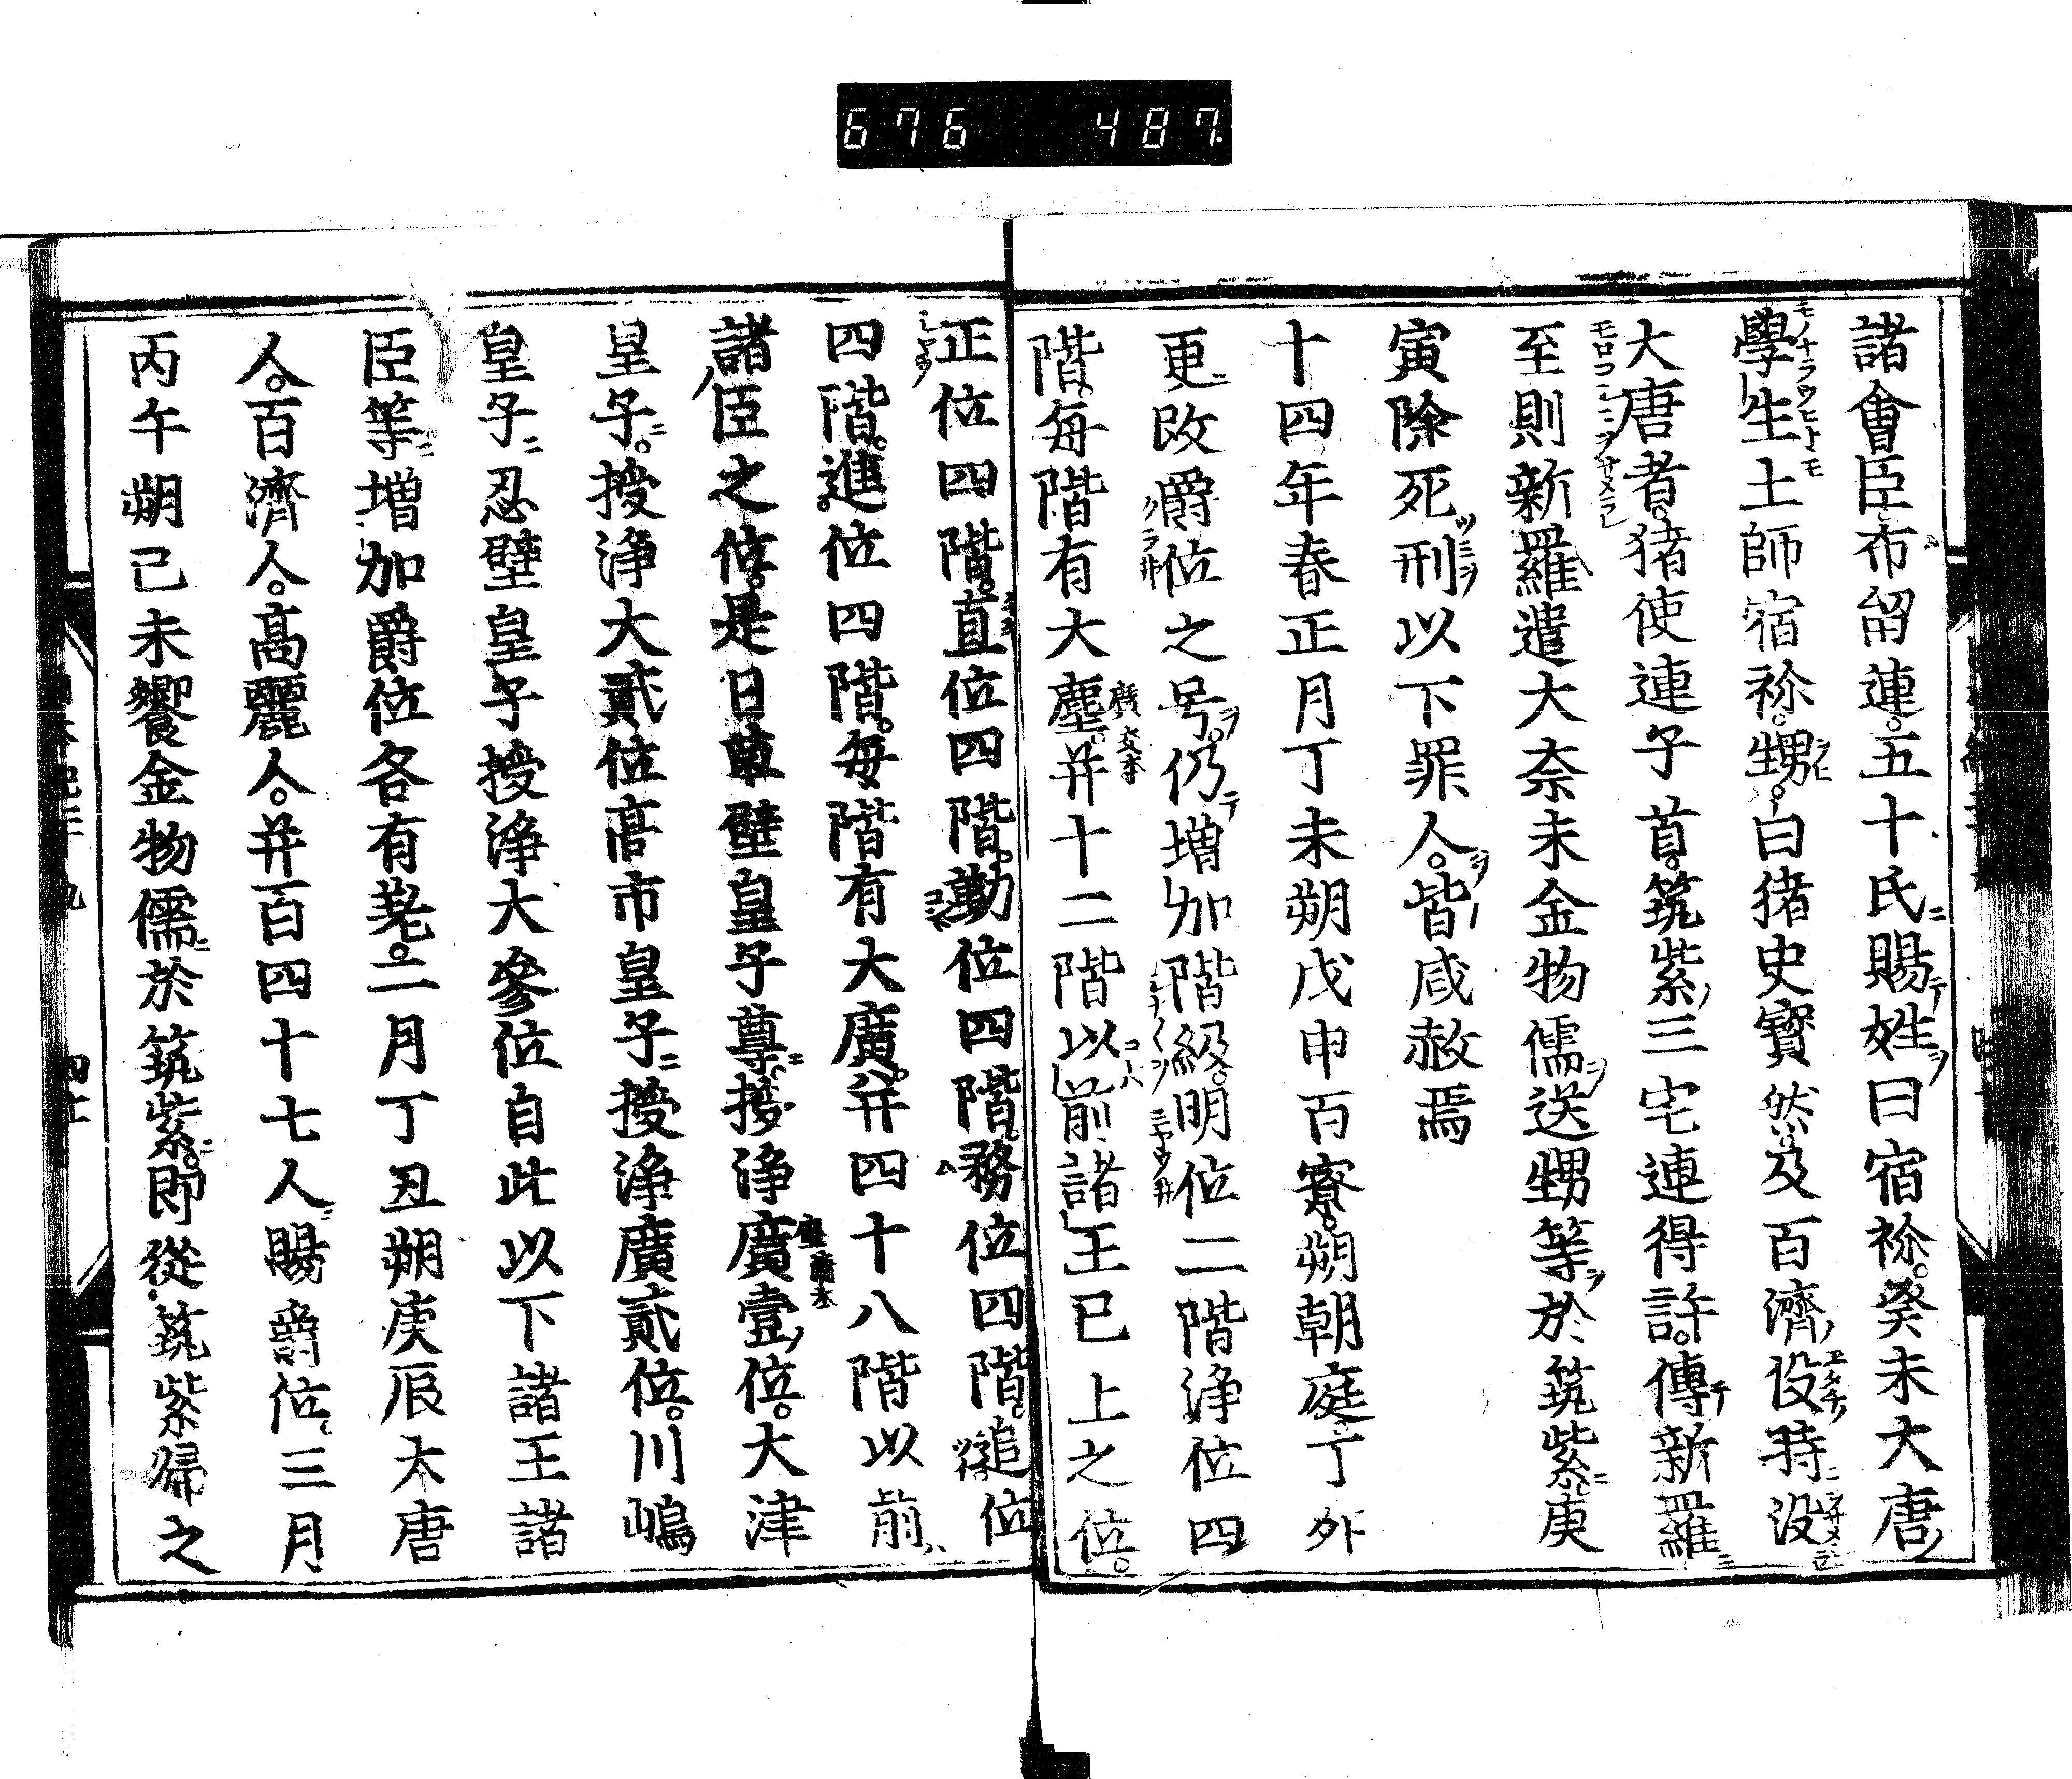 676 487
諸會臣布留連。五十氏賜姓曰宿祢。癸未大唐
學生土師宿祢。甥。白猪史寳然。及百濟役時没
大唐者。猪使連子首。筑紫三宅連得許。傳新羅
至則新羅遣大奈末金物儒送甥等於筑紫。庚
寅除死刑以下罪人。皆咸赦焉
十四年春正月丁未朔戊申百寮。朔朝庭丁外
更改爵位之号。仍増加階級。明位二階浄位四
階。毎階有大塵。并十二階以前諸王已上之位。
廣 交本
正位四階。直位四階。勤位四階。務位四階。追位
四階。進位四階。毎階有大廣。并四十八階以前
諸臣之位。是日草壁皇子尊。授浄廣壹位。大津
皇子。授浄大貳位高市皇子授浄廣貳位。川嶋
皇子忍壁皇子授浄大參位自此以下諸王諸
臣等増加爵位各有荖。二月丁丑朔庚辰大唐
人。百濟人。高麗人。并百四十七人賜爵位。三月
丙午朔己未饗金物儒於筑紫。即從筑紫歸之